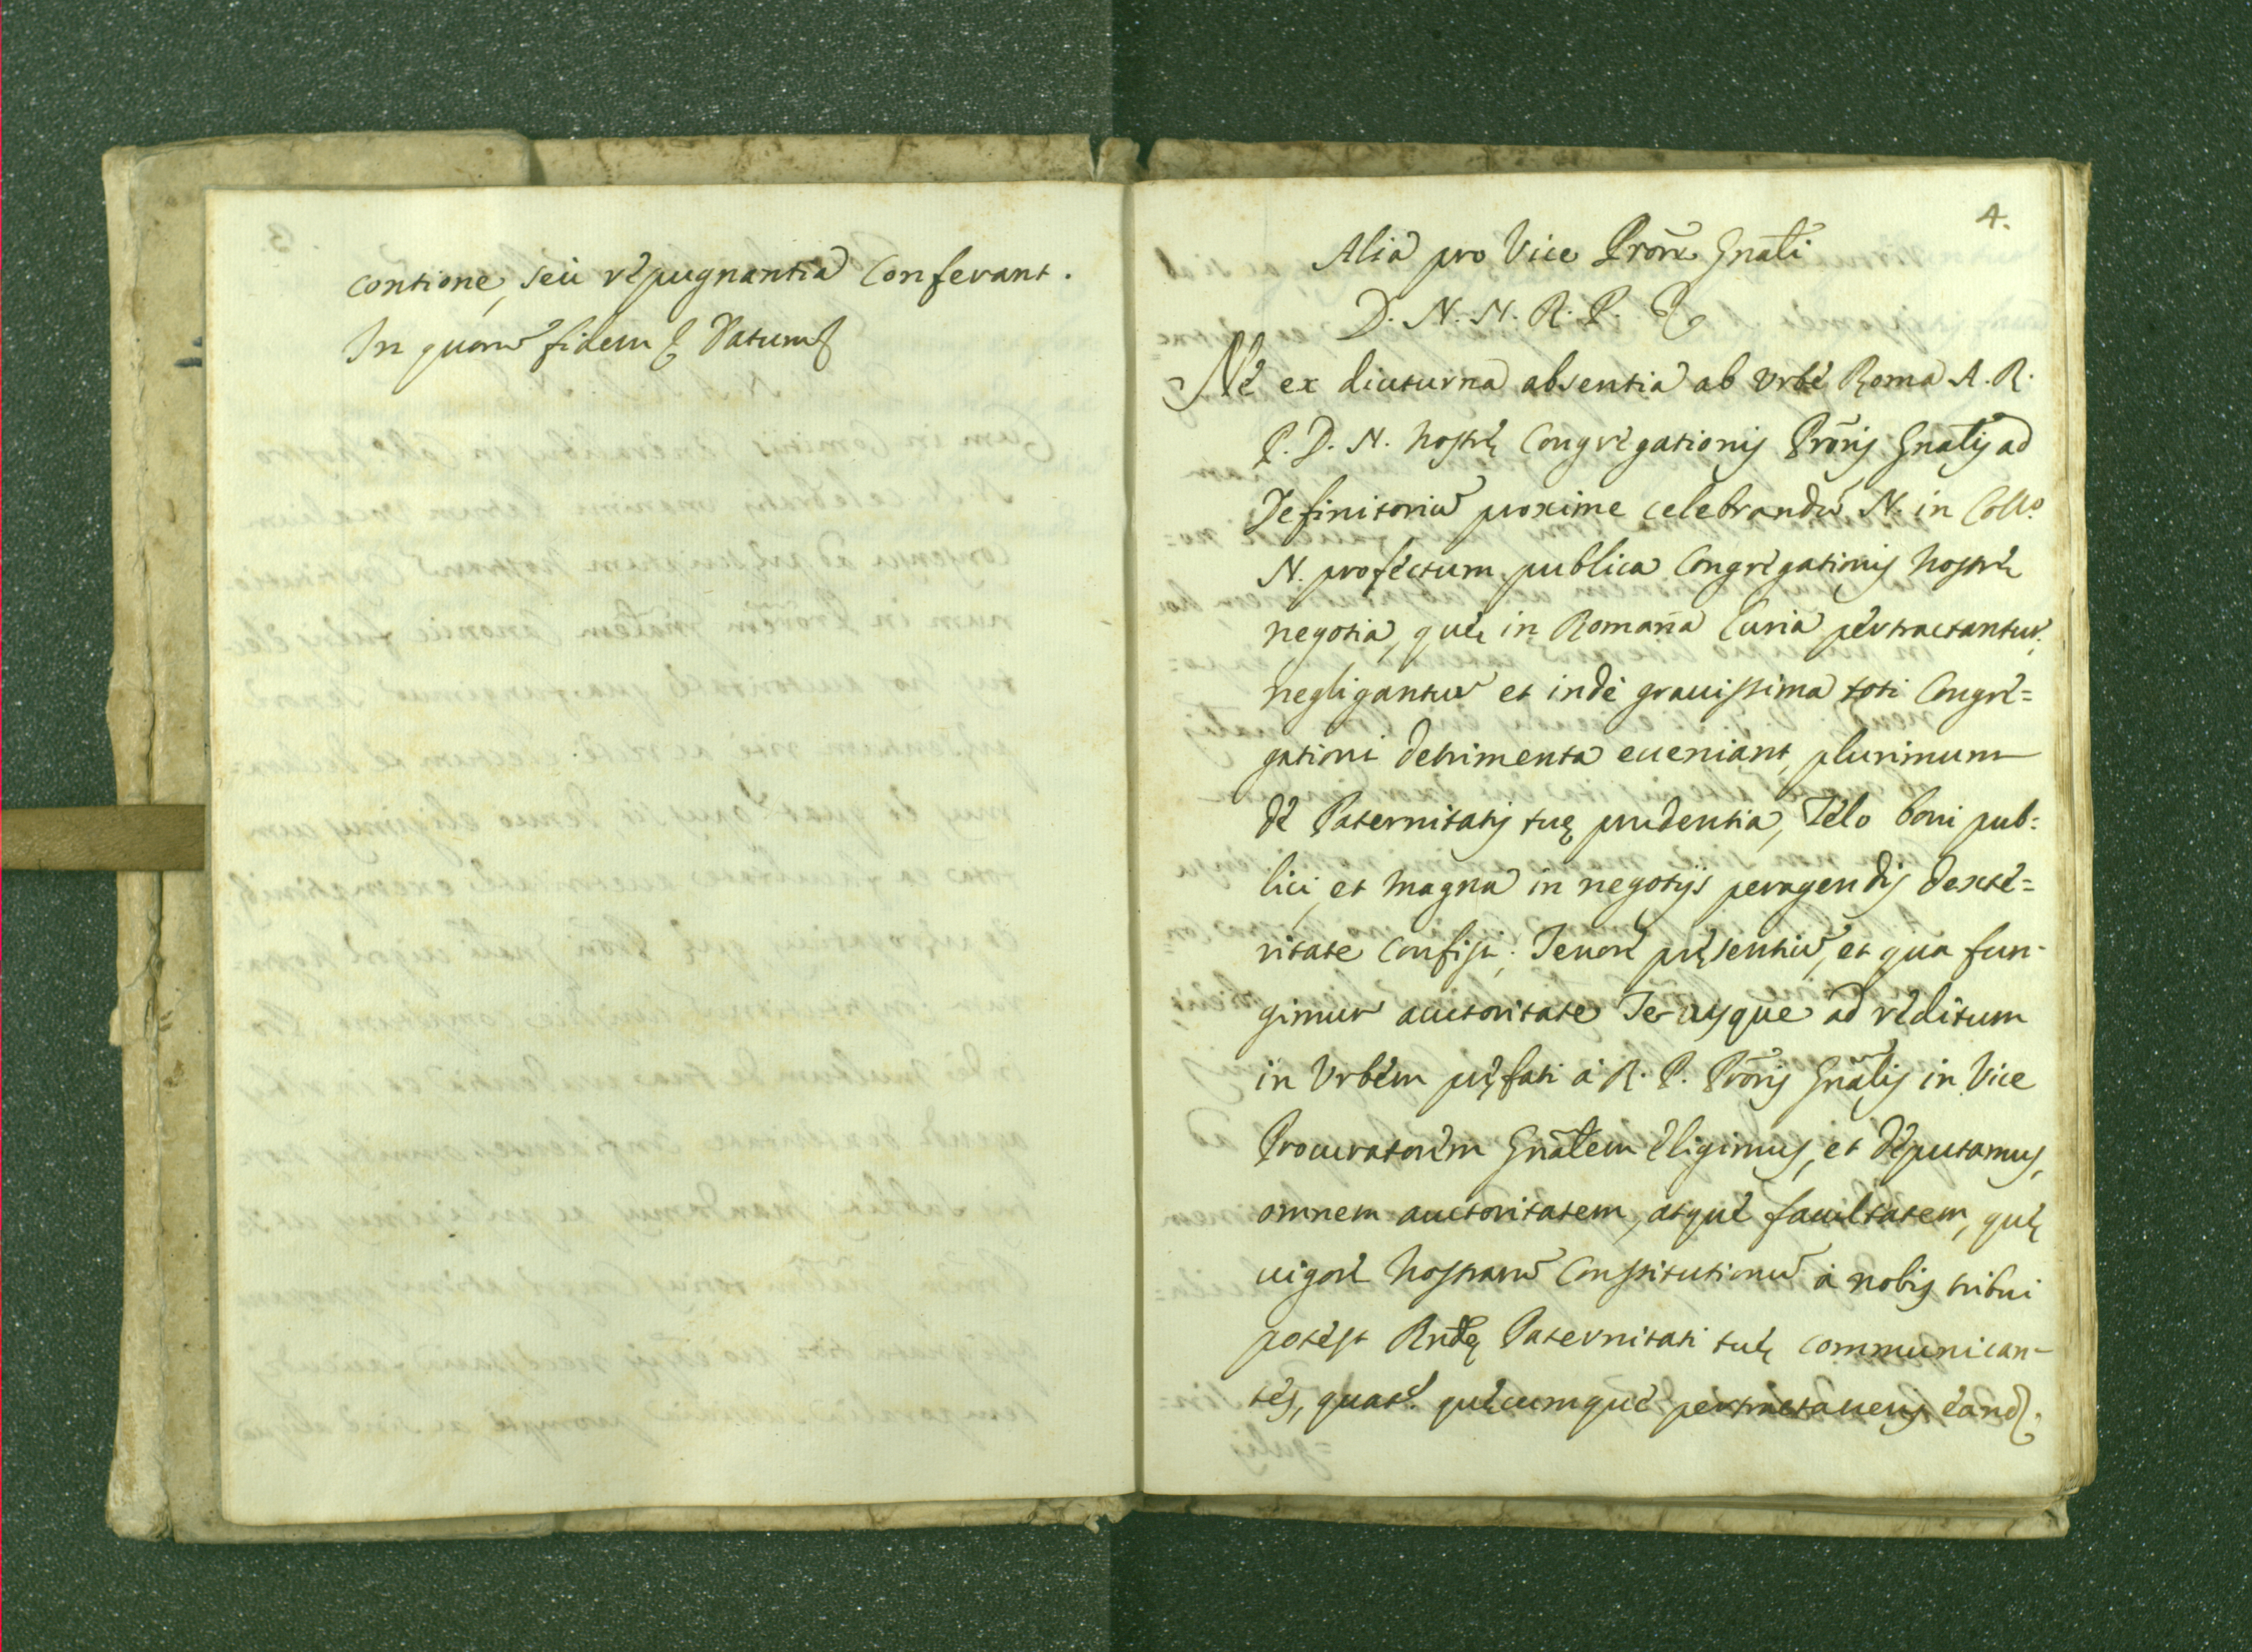 contione, seu repugnantia conferant.
In quorũ fidem & Datum &
4.
Alia pro Vice Prore Gnali
D. N. N. R. P. &
Ne ex diuturna absentia ab Urbe Roma A. R.
P. D. N. nostrę Congregationis Proris Gnalis ad
Definitoriũ proxime celebrandũ N. in Collo
N. profectum publica Congregationis nostrę
negotia, quę in Romana Curia pertractantur,
negligantur et inde grauissima toti Congre=
gationi detrimenta eueniant, plurimum
de Paternitatis tuę prudentia, Zelo boni pub=
lici, et magna in negotijs peragendis dexte=
ritate confisi. Tenore pręsentiũ, et qua fun-
gimur auctoritate Te usque ad reditum
in Urbem pręfati a R. P. Proris Gnalis in Vice
Procuratorem Gnalem eligimus, et deputamus,
omnem auctoritatem, atque facultatem, quę
uigore nostrarũ Constitutionũ à nobis tribui
potest Rndę Paternitati tuę communican-
tes, quate quęcumque pertractaueris eand.